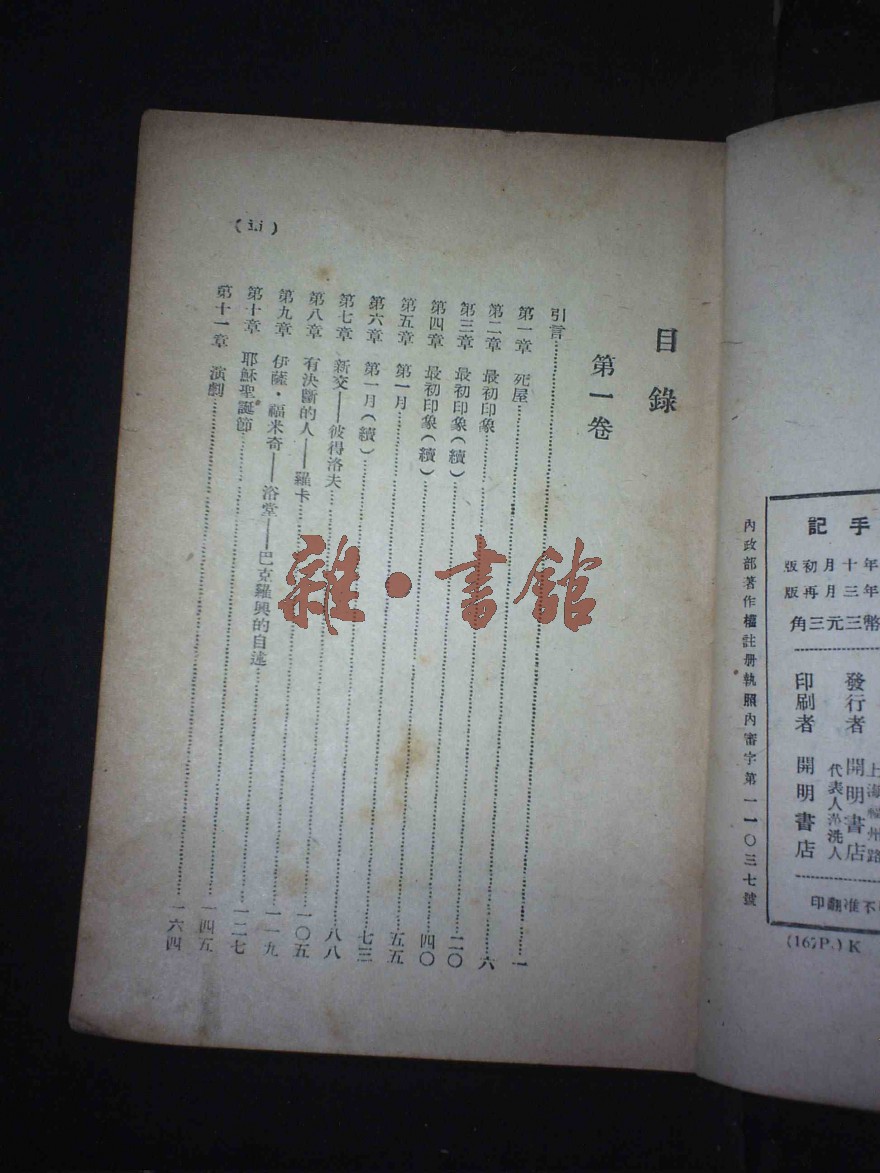 手記
年十月初版
年三月再版
幣三元三角
上海福州路
發行者 開明書店
代表人范洗人
印刷者 開明書店
不准翻印
(167P.) K
內政部著作權註册執照內審字第一一〇三七號
目錄
第一卷
引言……一
第一章 死屋……六
第二章 最初印象……二〇
第三章 最初印象(續)……四〇
第四章 最初印象(續)……五五
第五章 第一月……七三
第六章 第一月(續)……八八
第七章 新交——彼得洛夫……一〇五
第八章 有決斷的人——羅卡……一一九
第九章 伊薩·福米奇——浴堂——巴克羅興的自述……一二七
第十章 耶穌聖誕節……一四五
第十一章 演劇……一六四
(ii)
雜·書館